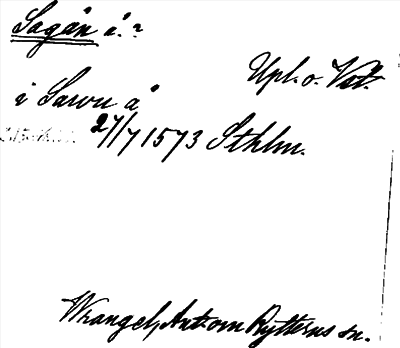 Sagån å.?
Upl. o. Vstl.
i Sawu å
27/7 1573 Sthlm.
Wrangel, Ant. om Rytterns sn.